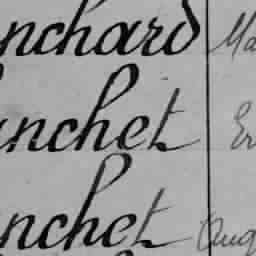 nchard Ma
nchet Er
nchet Aug